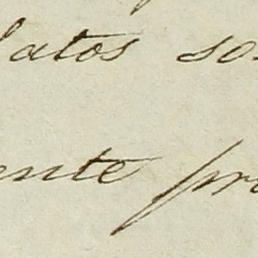 latos so
ente pro